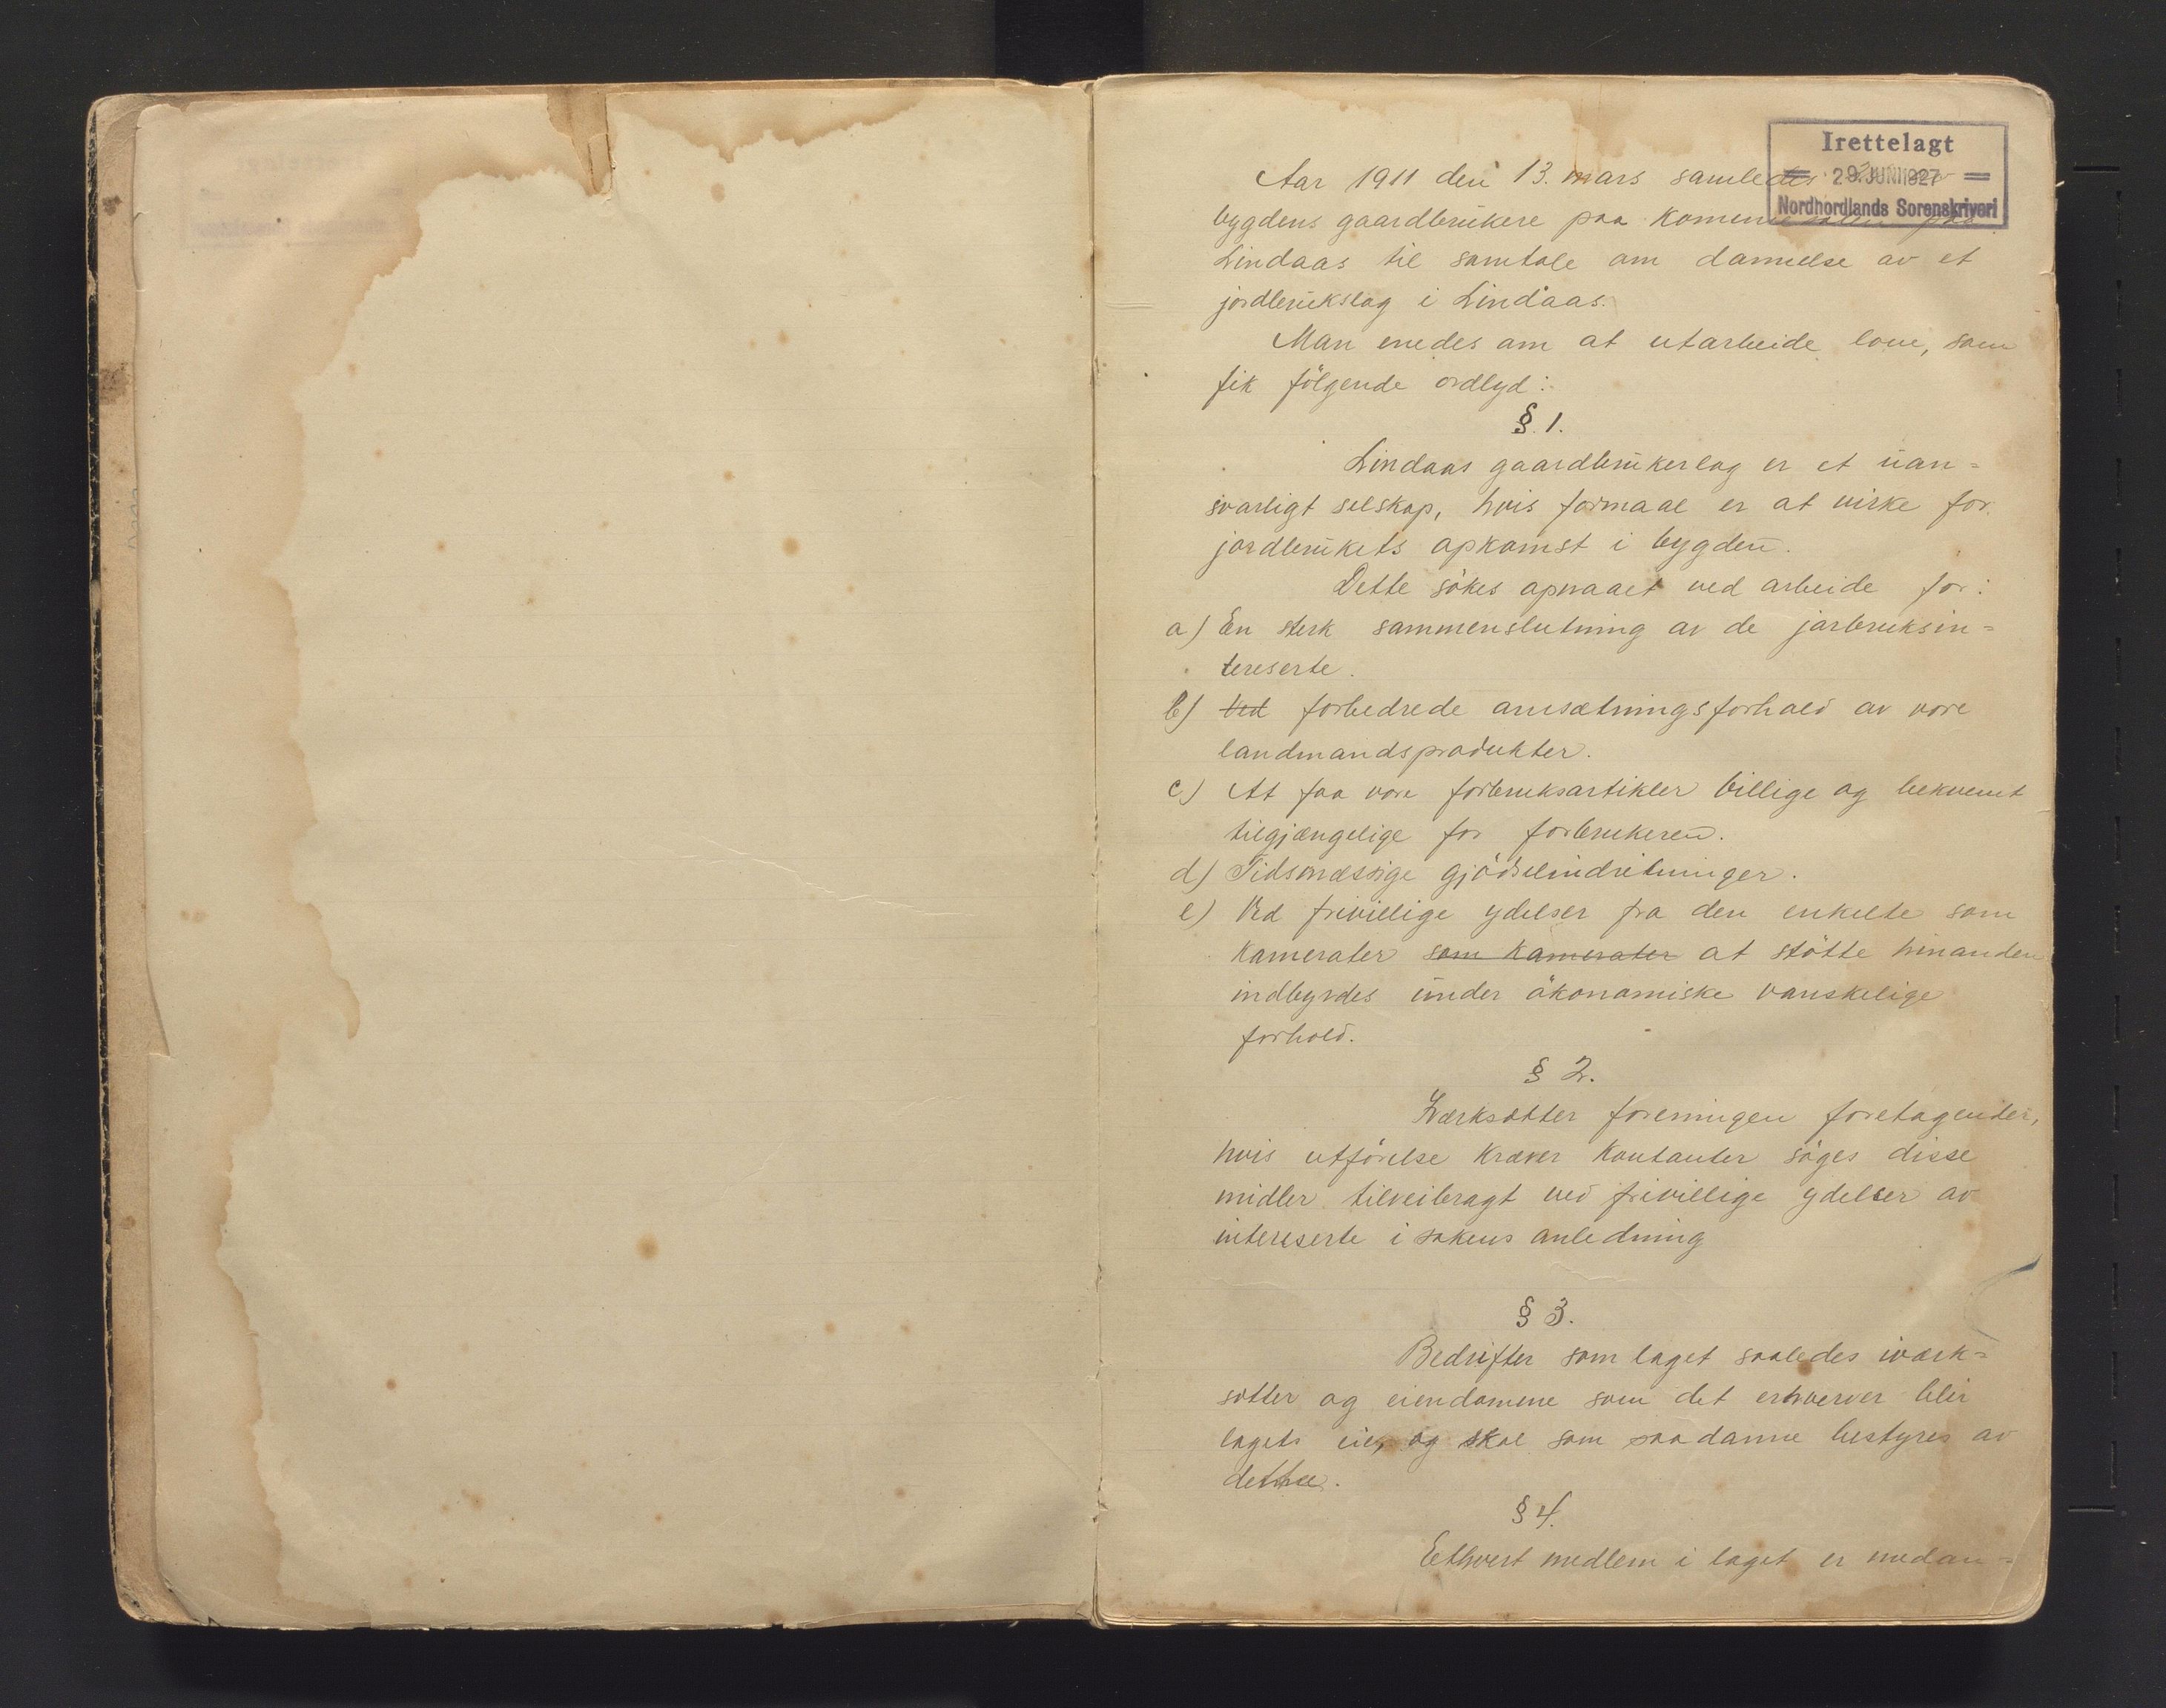 Irettelagt
29. JUNI 1927
Nordhordlands Sorenskriveri
Aar 1911 den 13. mars samledes
bygdens gaardbrukere paa Komunelokalet paa
Lindaas til samtale om dannelse av et
jordbrukslag i Lindaas.
Man enedes om at utarbeide love, som
fik følgende ordlyd:
§ 1.
Lindaas gaardbrukerlag er et uan=
svarligt selskap, hvis formaal er at virke for
jordbrukets opkomst i bygden.
Dette søkes opnaaet ved arbeide for:
a) En sterk sammenslutning av de jorbruksin=
tereserte.
b) Ved forbedrede omsætningsforhold av vore
landmandsprodukter.
c) At faa vore forbruksartikler billige og bekvemt
tilgjængelige for forbrukeren.
d) Tidsmæssige gjødselindretninger.
e) Ved frivillige ydelser fra den enkelte som
kamerater som kamerater at støtte hinanden
indbyrdes under økonomiske vanskelige
forhold.
§ 2.
Iværksætter foreningen foretagender,
hvis utførelse kræver kontanter søges disse
midler tilveibragt ved frivillige ydelser av
intereserte i sakens anledning
§ 3.
Bedrifter som laget saaledes iværk=
sætter og eiendomme som det erhverver blir
lagets eie, og skal som saadanne bestyres av
dette.
§ 4.
Eethvert medlem i laget er medan=